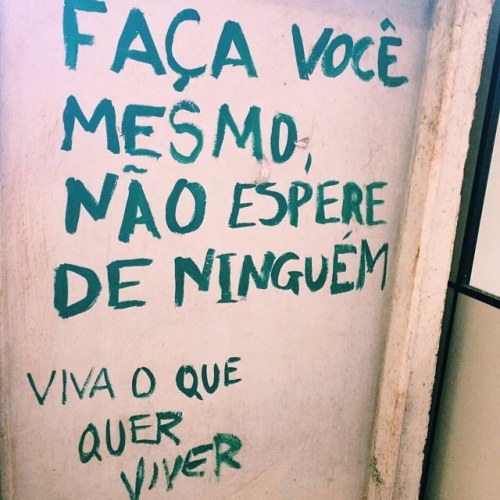 FAÇA VOCÊ
MESMO,
NÃO ESPERE
DE NINGUÉM
VIVA O QUE
QUER
VIVER